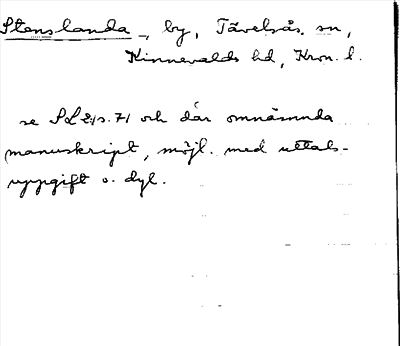 Stenslanda -, by, Tävelsås sn,
Kinnevalds hd, Kron. l.
se SL 21 s. 71 och där omnämnda
manuskript, möjl. med uttals-
uppgift o. dyl.